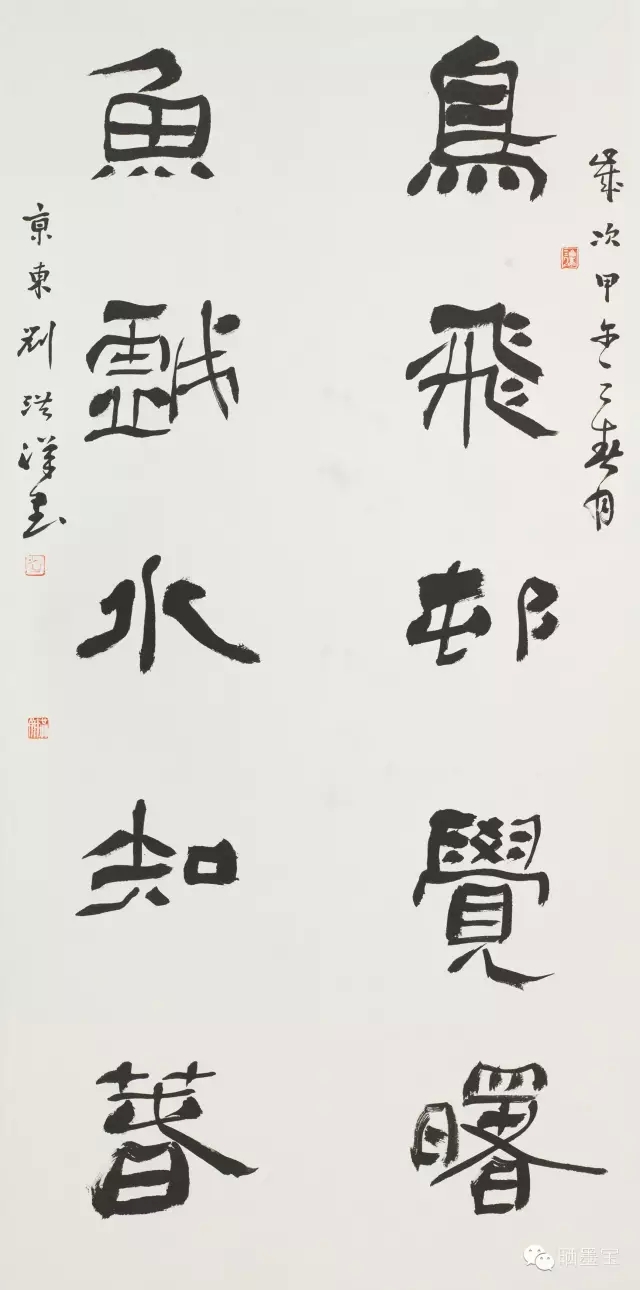 歲次甲午之春月
鳥飛邨覺曙
魚戲水知春
京東劉洪洋書
晒墨宝